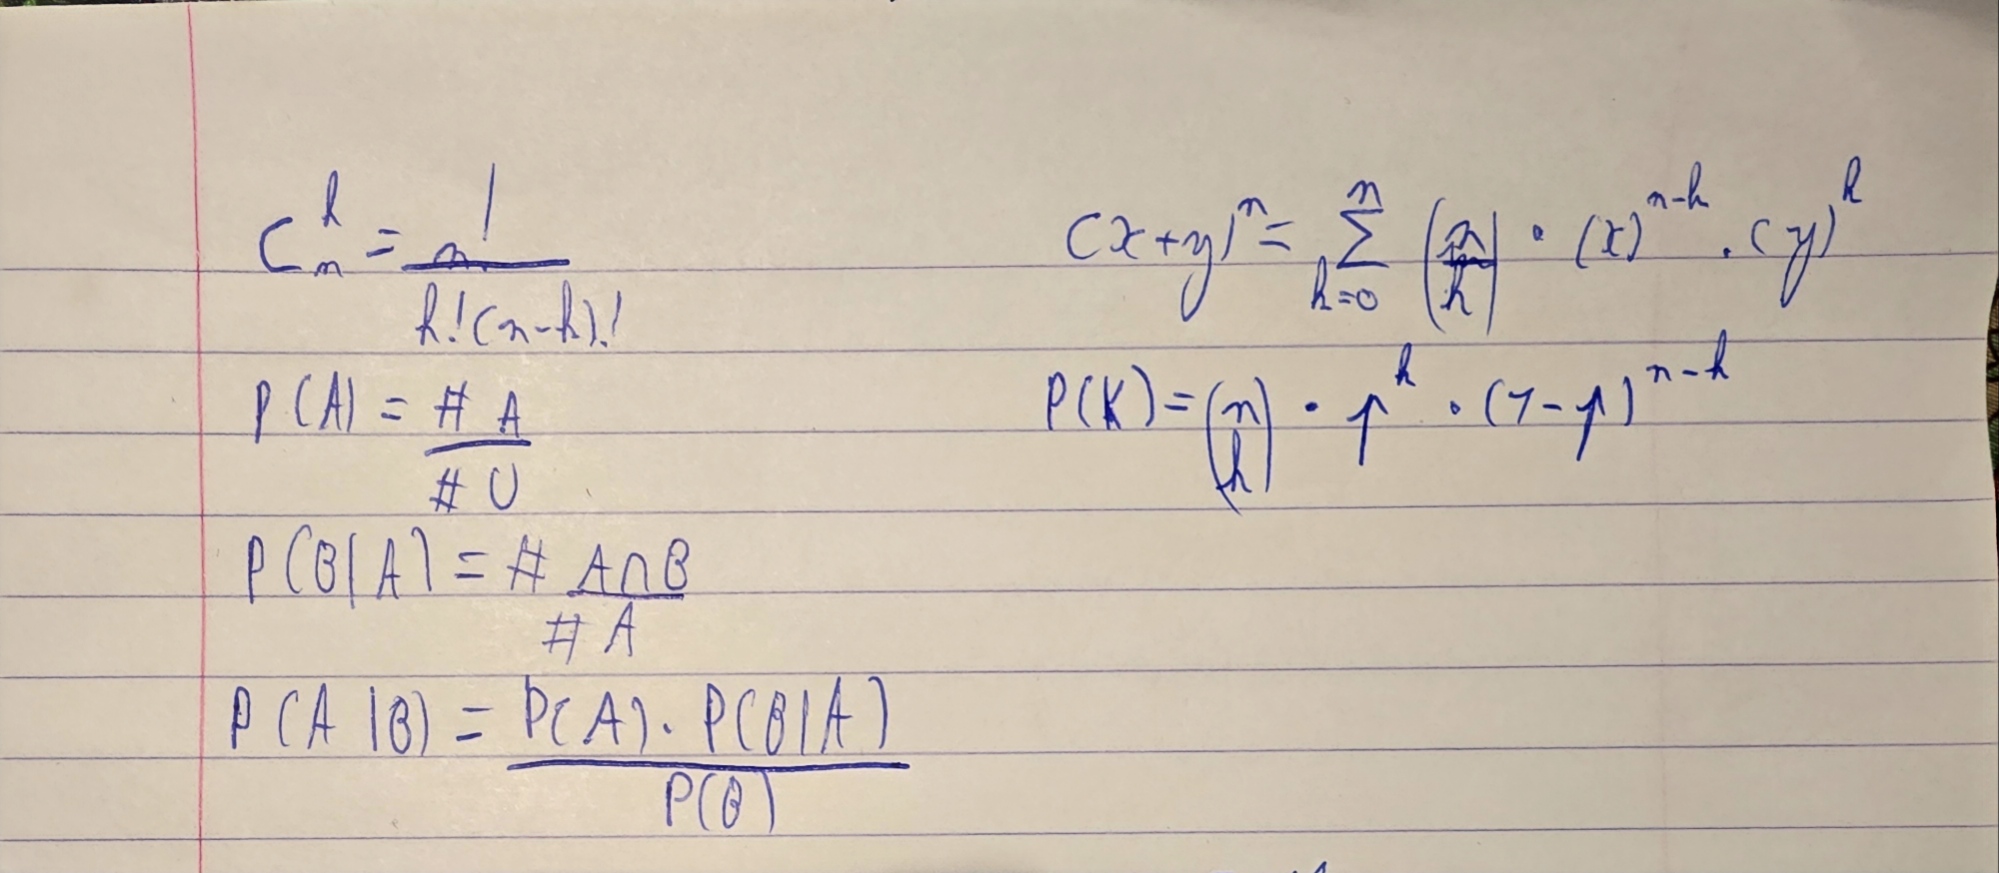 C_n^k = n! / k!(n-k)!
P(A) = # A / # U
P(B|A) = # A∩B / # A
P(A|B) = P(A). P(B|A) / P(B)
(x+y)^n = ∑_{k=0}^{n} (n/k) · (x)^{n-k} . (y)^k
P(K) = (n k) · p^k · (1-p)^{n-k}